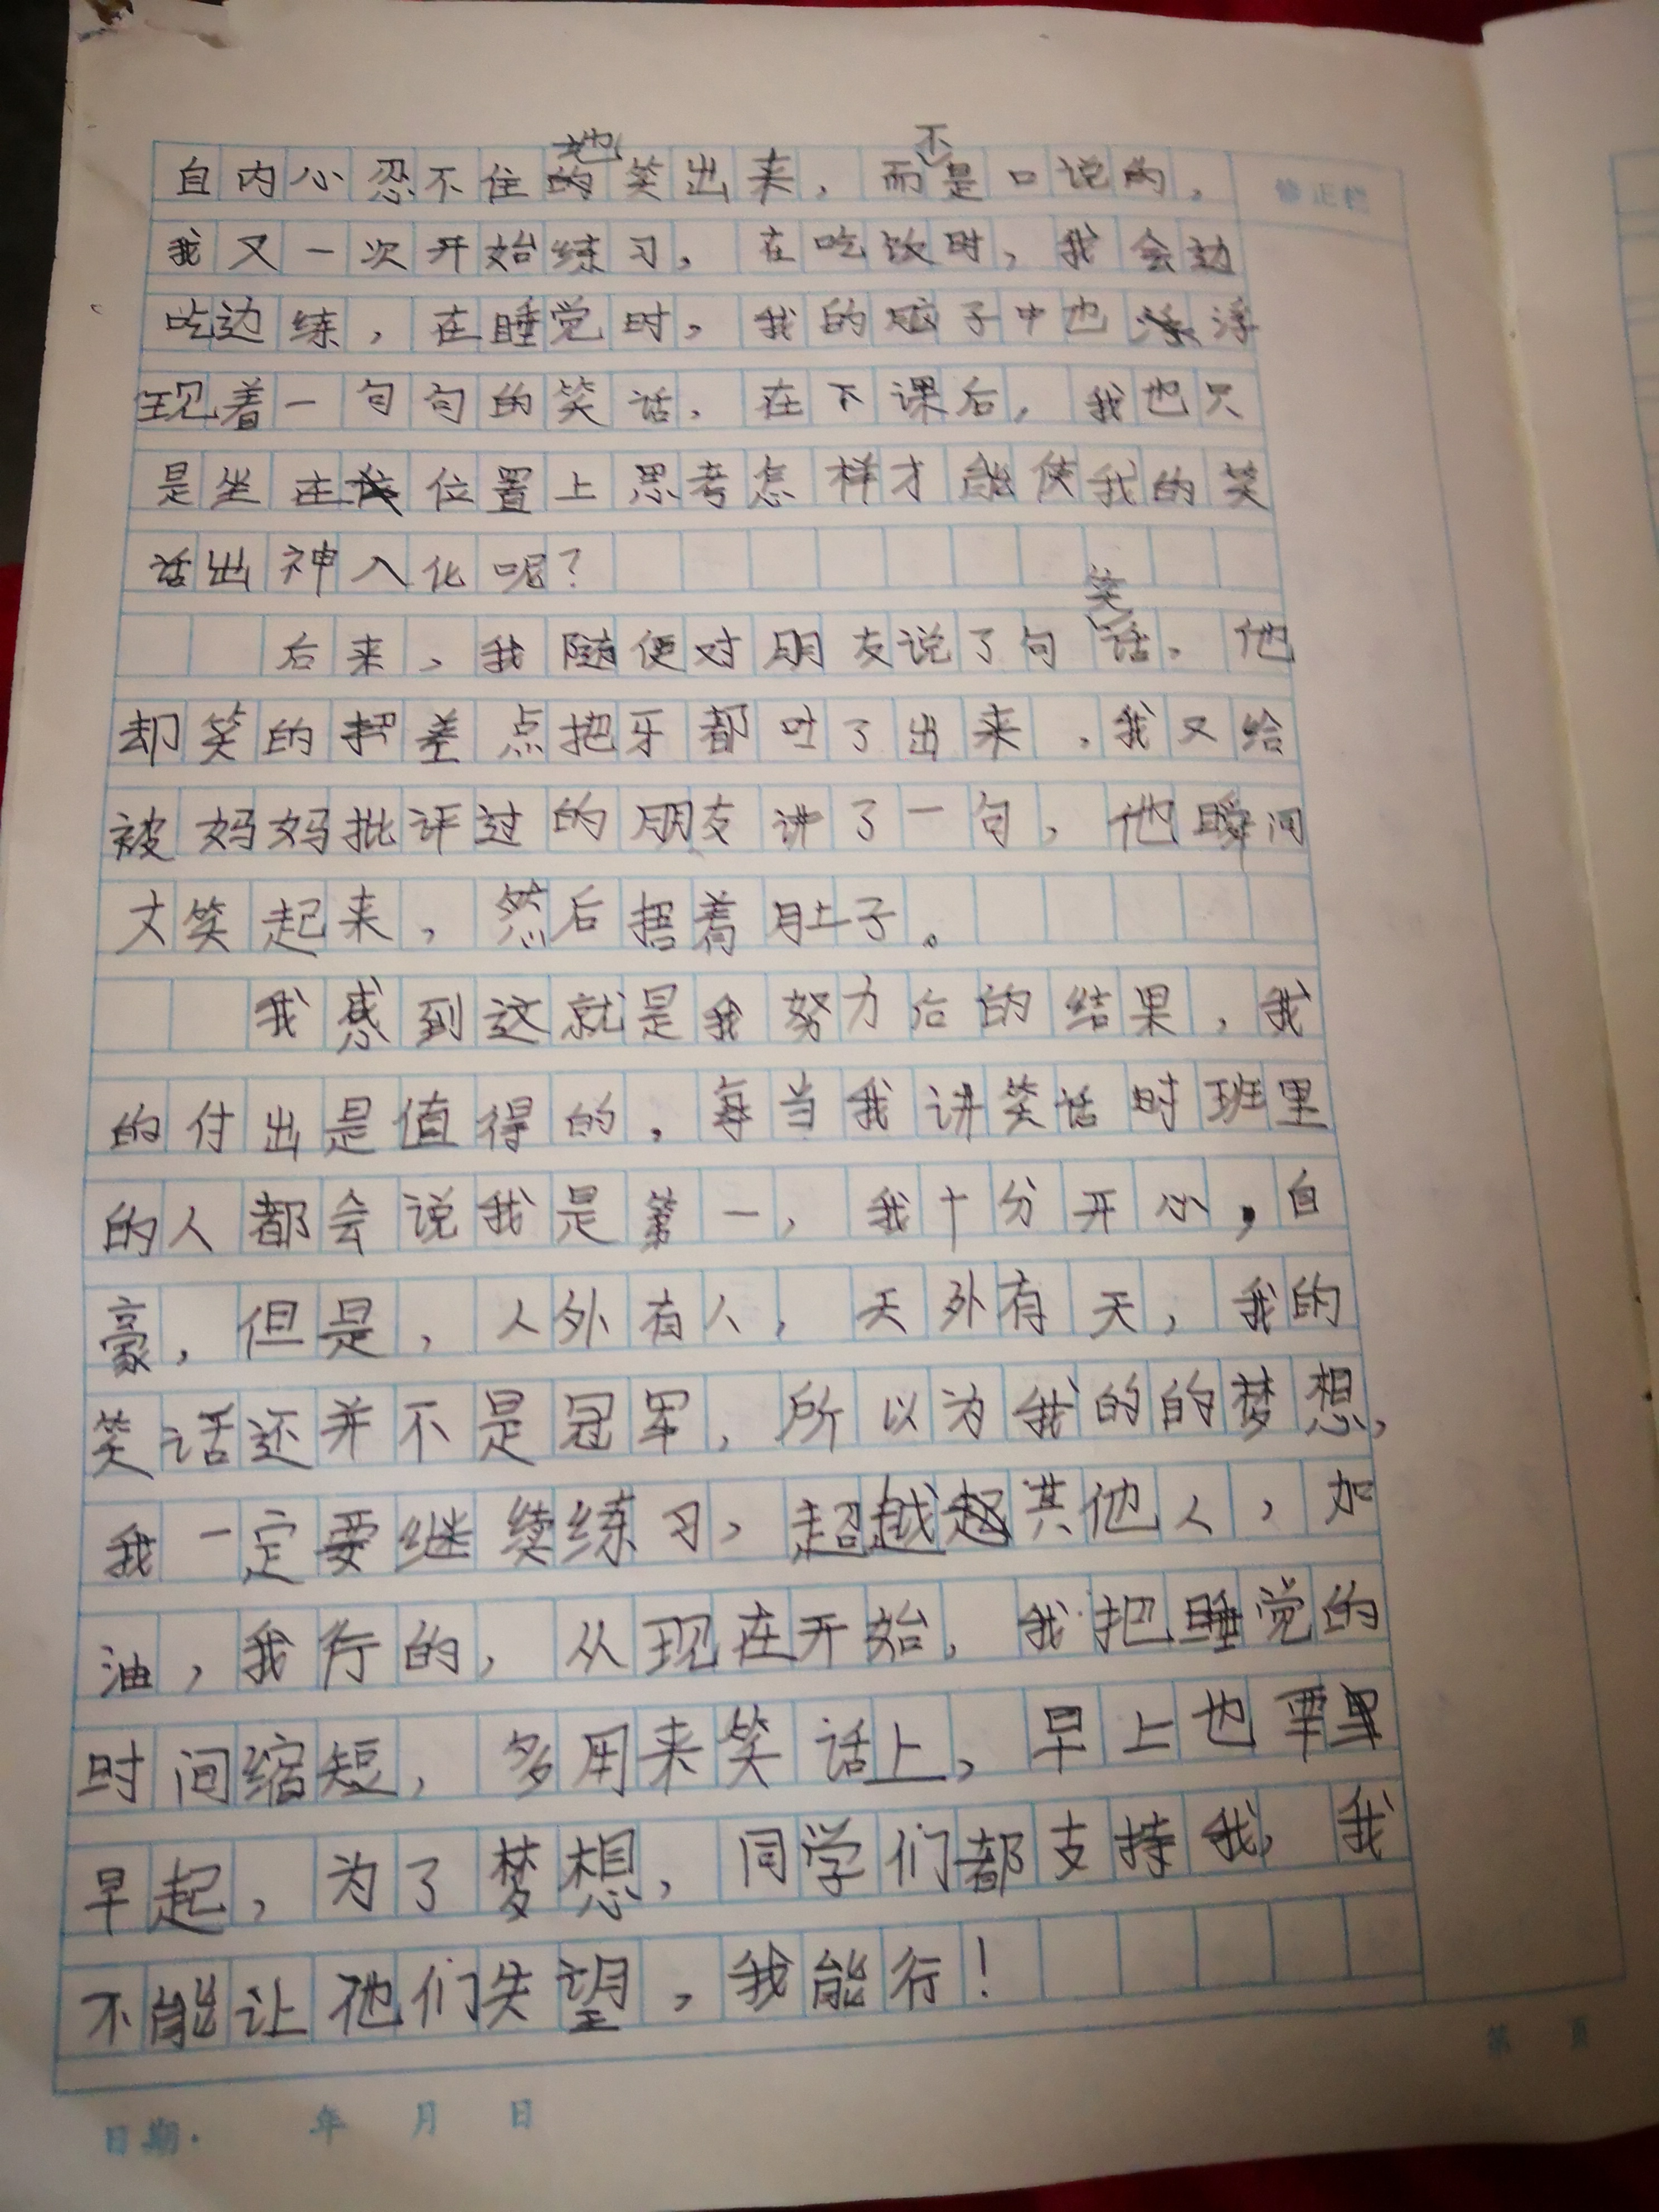 自内心忍不住地笑出来，而不是口说的，
修正栏
我又一次开始练习，在吃饭时，我会边
吃边练，在睡觉时，我的脑子中也浮
现着一句句的笑话，在下课后，我也只
是坐在位置上思考怎样才能使我的笑
话出神入化呢？
后来，我随便对朋友说了句笑话，他
却笑的差点把牙都吐了出来，我又给
被妈妈批评过的朋友讲了一句，他瞬间
大笑起来，然后捂着肚子。
我感到这就是我努力后的结果，我
的付出是值得的，每当我讲笑话时班里
的人都会说我是第一，我十分开心，自
豪，但是，人外有人，天外有天，我的
笑话还并不是冠军，所以为我的的梦想，
我一定要继续练习，超越其他人，加
油，我行的，从现在开始，我把睡觉的
时间缩短，多用来笑话上，早上也要
早起，为了梦想，同学们都支持我，我
不能让他们失望，我能行！
第 页
日期： 年 月 日